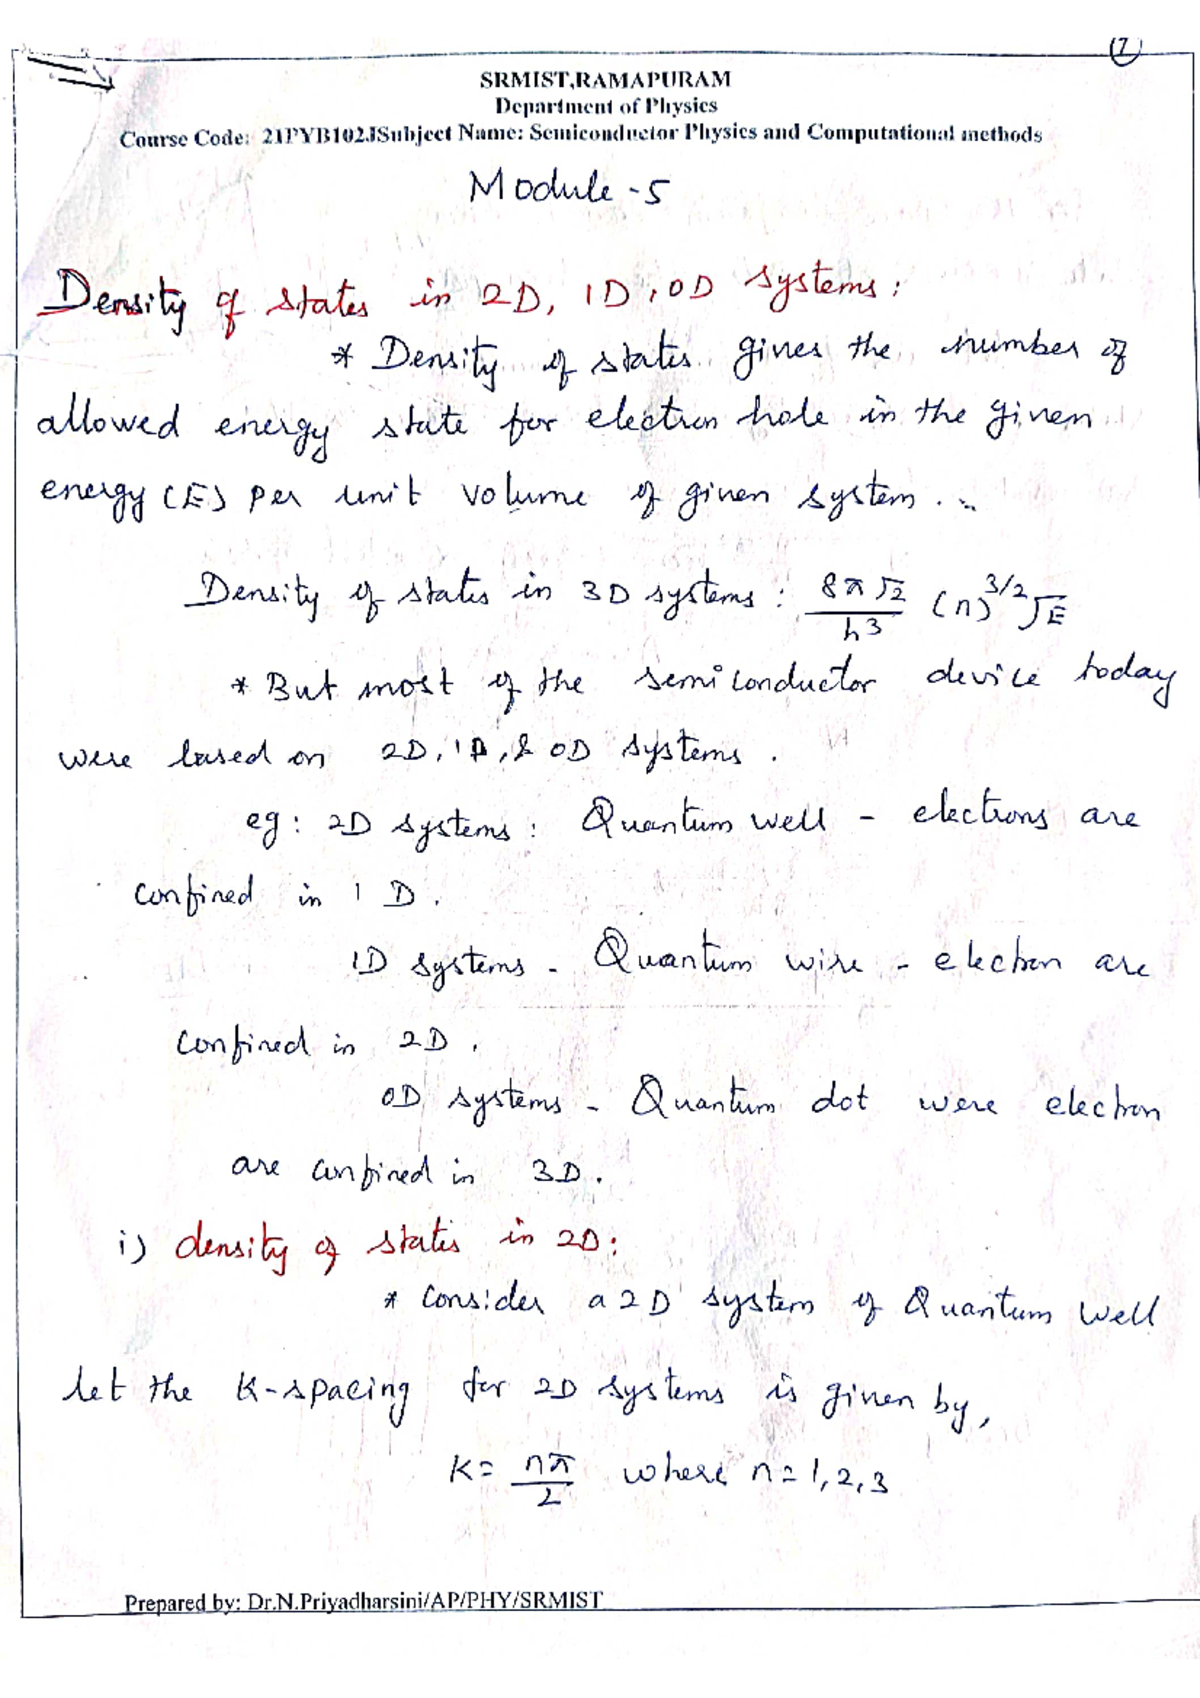 7
SRMIST,RAMAPURAM
Department of Physics
Course Code: 21PYB102JSubject Name: Semiconductor Physics and Computational methods
Module -5
Density of states in 2D, 1D, 0D systems:
* Density of states gives the number of
allowed energy state for electron hole in the given
energy (E) per unit volume of given system.
Density of states in 3D systems: 8π√2/h³ (n)^3/2 √E
* But most of the semiconductor device today
were based on 2D, 1D, & 0D systems.
eg: 2D systems: Quantum well - electrons are
confined in 1D.
1D systems - Quantum wire - electron are
confined in 2D.
0D systems - Quantum dot were electron
are confined in 3D.
i) density of states in 2D:
* Consider a 2D system of Quantum well
let the K-spacing for 2D systems is given by,
K= nπ/2 where n=1,2,3
Prepared by: Dr.N.Priyadharsini/AP/PHY/SRMIST